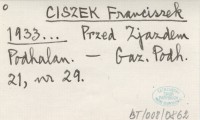 CISZEK Franciszek
1933... Przed Zjazdem
Podhalan. — Gaz. Podh.
21, nr 29.
BT/008/0262